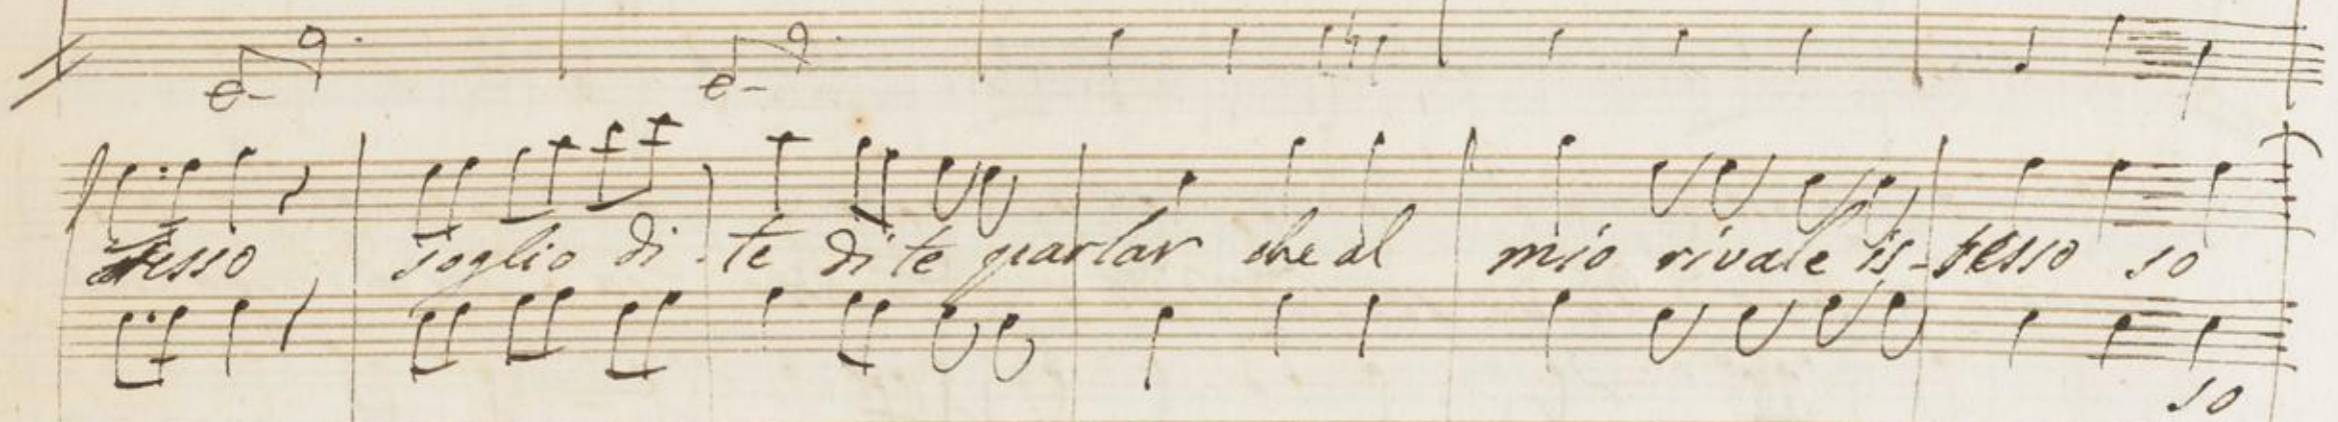 stesso soglio di - te di te parlar che al mio rivale is - tesso so
so